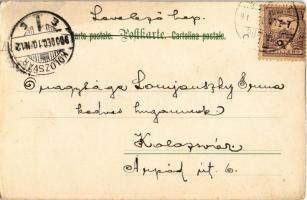 Levelező lap.
Carte postale. Postkarte. Cartolina postale.
KOLOZSVÁR
900 DEC 10 N12
Ő nagysága Lonijanszky Emma
kedves húgomnak
Kolozsvár
Árpád út. 6.